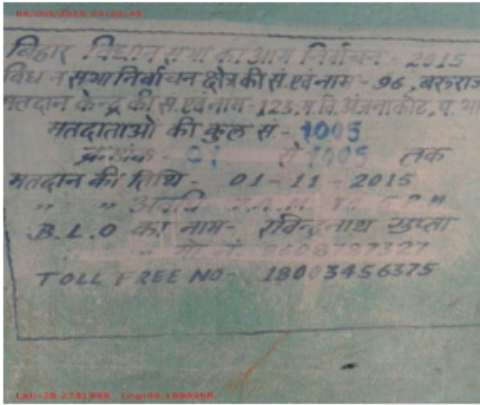 बिहार विधान सभा का आम निर्वाचन - 2015
विधान सभा निर्वाचन क्षेत्र की सं. एवं नाम - 96, बरुराज
मतदान केन्द्र की सं. एवं नाम - 123,
मतदाताओ की कुल सं - 1005
क्रमांक - 01 से 1005 तक
मतदान की तिथि - 01-11-2015
" " अवधि
B.L.O का नाम - रविन्द्रनाथ गुप्ता
TOLL FREE NO - 18003456375